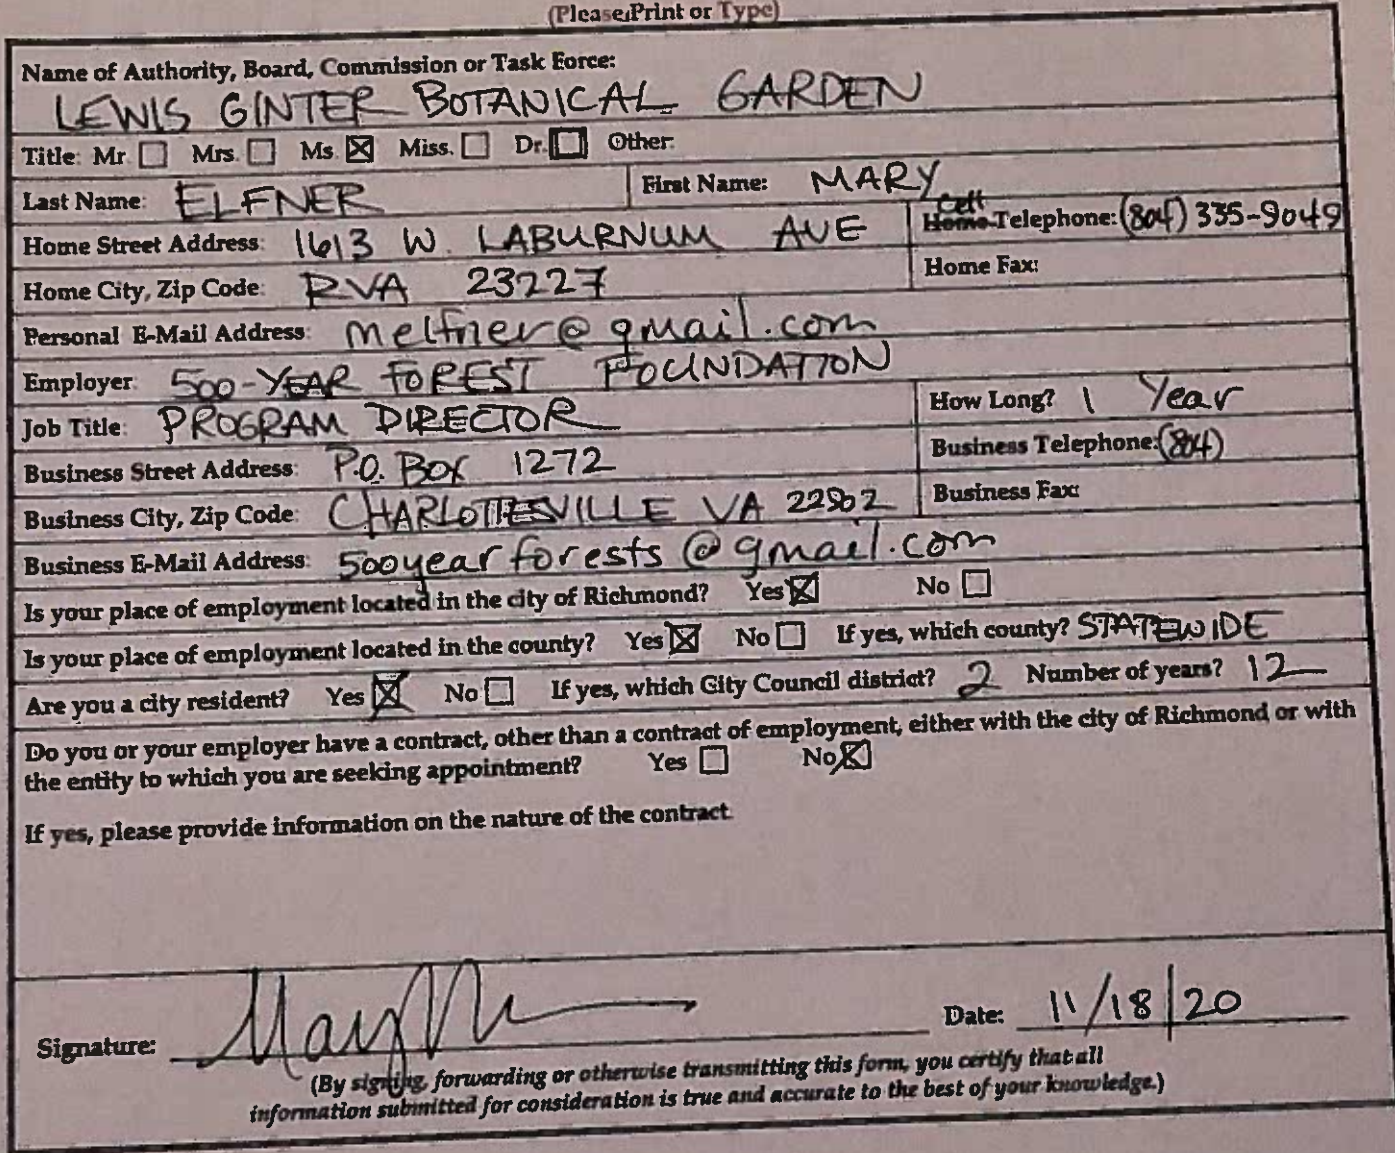 (Please Print or Type)
Name of Authority, Board, Commission or Task Force:
LEWIS GINTER BOTANICAL GARDEN
Title: Mr. ☐ Mrs. ☐ Ms. ☒ Miss. ☐ Dr. ☐ Other:
Last Name: ELFNER First Name: MARY
Home Street Address: 1613 W. LABURNUM AVE Cell Home Telephone: (804) 335-9049
Home City, Zip Code: RVA 23227 Home Fax:
Personal E-Mail Address: melfner@gmail.com
Employer: 500-YEAR FOREST FOUNDATION
Job Title: PROGRAM DIRECTOR How Long? 1 Year
Business Street Address: P.O. Box 1272 Business Telephone: (804)
Business City, Zip Code: CHARLOTTESVILLE VA 22902 Business Fax:
Business E-Mail Address: 500yearforests@gmail.com
Is your place of employment located in the city of Richmond? Yes ☒ No ☐
Is your place of employment located in the county? Yes ☒ No ☐ If yes, which county? STATEWIDE
Are you a city resident? Yes ☒ No ☐ If yes, which City Council district? 2 Number of years? 12
Do you or your employer have a contract, other than a contract of employment, either with the city of Richmond or with
the entity to which you are seeking appointment? Yes ☐ No ☒
If yes, please provide information on the nature of the contract.
Signature: Date: 11/18/20
(By signing, forwarding or otherwise transmitting this form, you certify that all
information submitted for consideration is true and accurate to the best of your knowledge.)